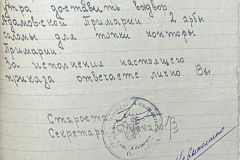 утра доставить воздвор
Адамовской Примарии 2 арбы
соломы для топки конторы
Примарии.
За исполнения настоящего
приказа отвечаете лично Вы.
Староста
Секретарь